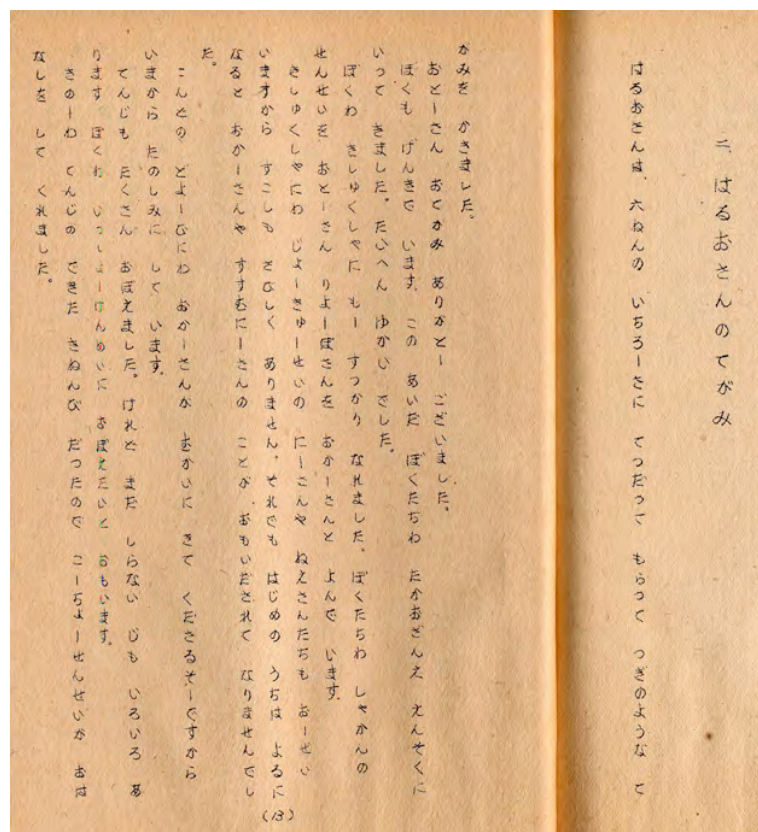 二、はるおさんのてがみ
はるおさんは 六ねんの いちろーさに てつだって もらって つぎのような て
がみを かきました。
おとーさん おてがみ ありがとー ございました。
ぼくも げんきで います。この あいだ ぼくたちわ たかおざんえ えんそくに
いって きました。たいへん ゆかい でした。
ぼくわ きしゅくしゃに もー すつかり なれました。ぼくたちわ しゃかんの
せんせいを おとーさん りよーぼさんを おかーさんと よんで います。
きしゅくしゃにわ じょーきゅーせいの にーさんや ねえさんたちも おーぜい
いますから すこしも さびしく ありません。それでも はじめの うちは よるに
なると おかーさんや すすむにーさんの ことが おもいだされて なりませんでし
た。
こんどの どよーびにわ おかーさんが むかいに きて くださるそーですから
いまから たのしみに して います。
てんじも たくさん おぼえました。けれど まだ しらない じも いろいろ あ
ります。ぼくわ いっしょーけんめいに おぼえたいと おもいます。
きのーわ てんじの できた きねんび だつたので こーちょーせんせいが おは
なしを して くれました。
(13)